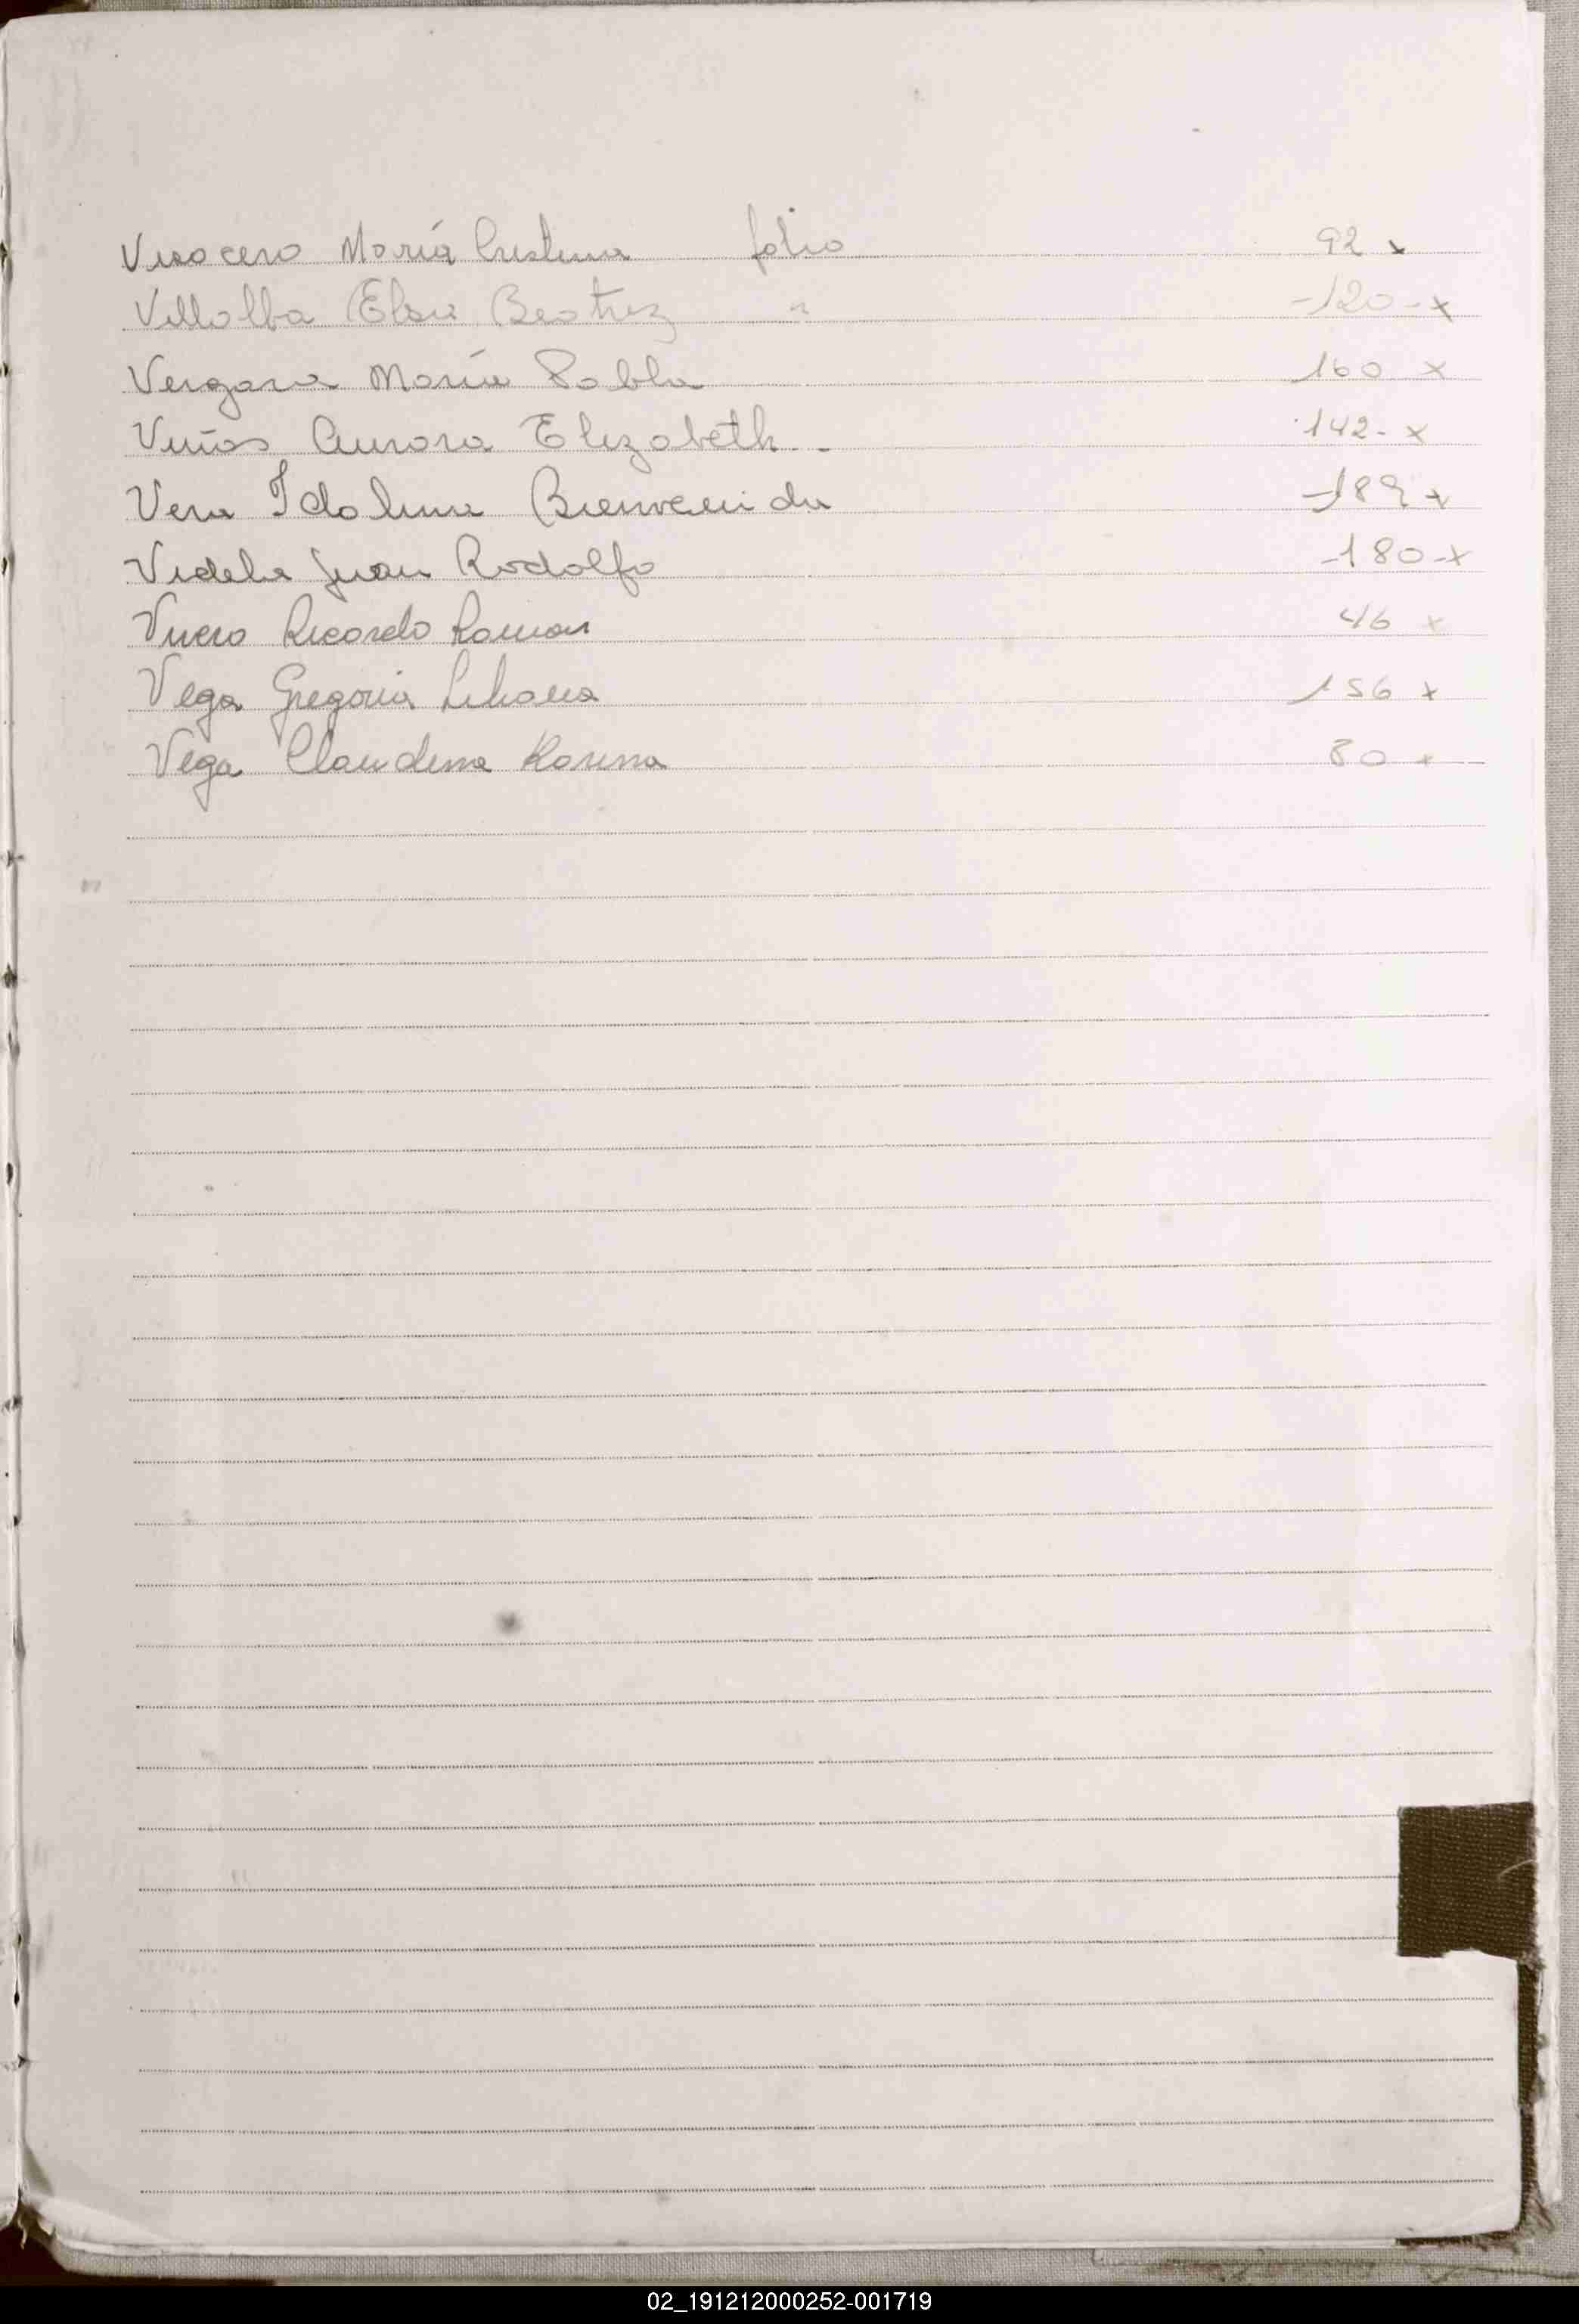 Visocero María Cristina folio 92 x
Villalba Elsa Beatriz " -120- x
Vergara María Pabla 160 x
Viñas Aurora Elizabeth - 142- x
Vera Idolina Bienvenida -189 x
Videla Juan Rodolfo -180- x
Ricardo Ramon 46 x
Vega Gregoria Liliana 156 x
Vega Claudina Rosina 80 x
02_191212000252-001719